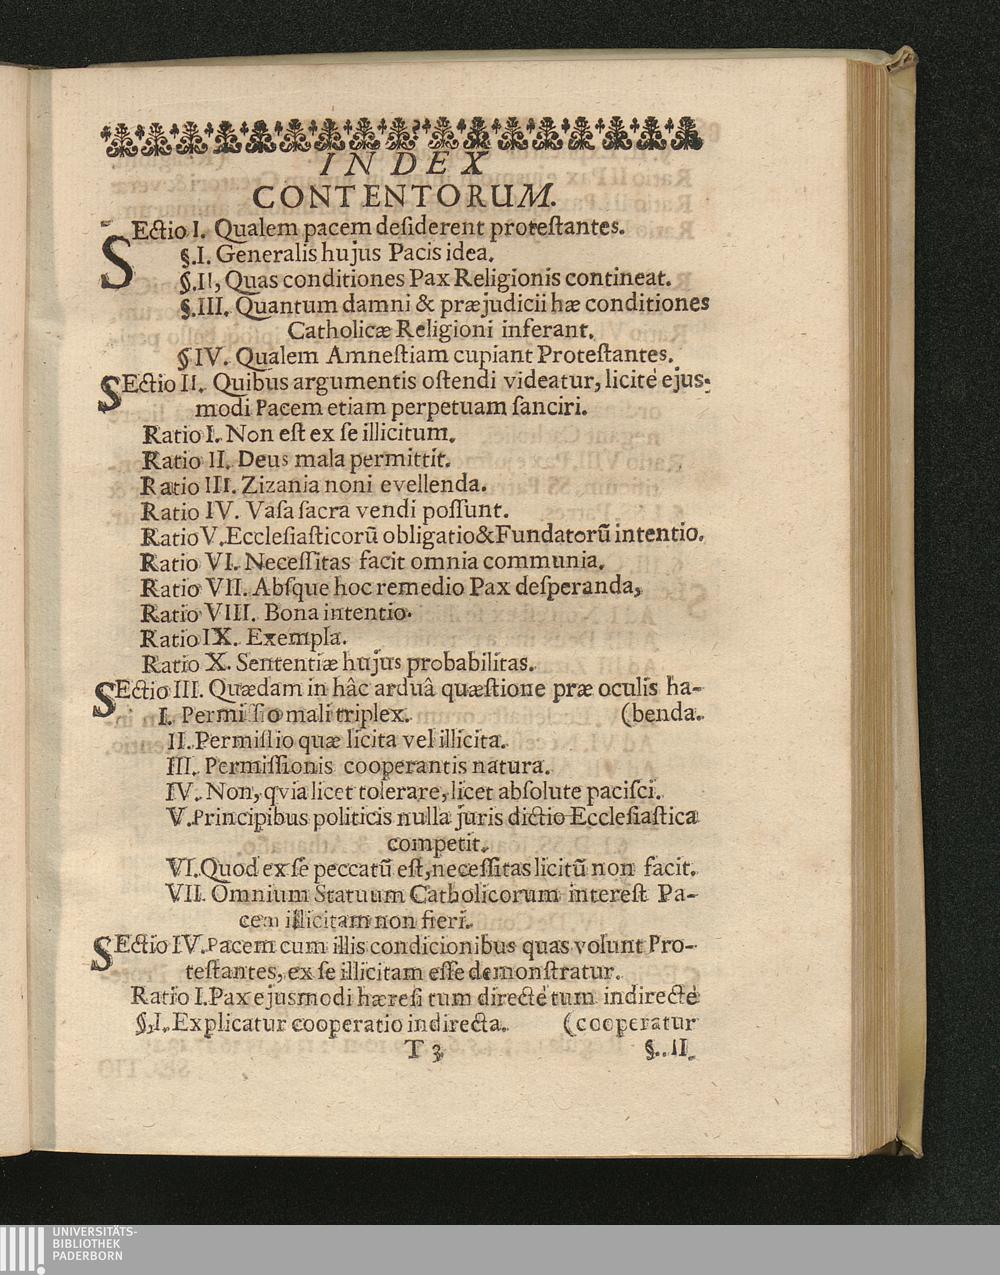 INDEX
CONTENTORUM.
SEctio I. Qualem pacem desiderent protestantes.
§.I. Generalis hujus Pacis idea.
§.II, Quas conditiones Pax Religionis contineat.
§.III. Quantum damni & præjudicii hæ conditiones
Catholicæ Religioni inferant.
§ IV. Qualem Amnestiam cupiant Protestantes.
SEctio II. Quibus argumentis ostendi videatur, licitè ejus-
modi Pacem etiam perpetuam sanciri.
Ratio I. Non est ex se illicitum.
Ratio II. Deus mala permittit.
Ratio III. Zizania noni evellenda.
Ratio IV. Vasa sacra vendi possunt.
Ratio V. Ecclesiasticorū obligatio&Fundatorū intentio.
Ratio VI. Necessitas facit omnia communia.
Ratio VII. Absque hoc remedio Pax desperanda,
Ratio VIII. Bona intentio.
Ratio IX. Exempla.
Ratio X. Sententiæ hujus probabilitas.
SEctio III. Quædam in hâc arduâ quæstione præ oculis ha-
I. Permissio mali triplex. (benda.
II. Permissio quæ licita vel illicita.
III. Permissionis cooperantis natura.
IV. Non, qvia licet tolerare, licet absolute pacisci.
V. Principibus politicis nulla juris dictio Ecclesiastica
competit.
VI. Quod ex se peccatū est, necessitas licitū non facit.
VII. Omnium Statuum Catholicorum interest Pa-
cem illicitam non fieri.
SEctio IV. Pacem cum illis condicionibus quas volunt Pro-
testantes, ex se illicitam esse demonstratur.
Ratio I. Pax ejusmodi hæresi tum directè tum indirectè
§.I. Explicatur cooperatio indirecta. (cooperatur
T 3 §. II.
UNIVERSITÄTS-
BIBLIOTHEK
PADERBORN